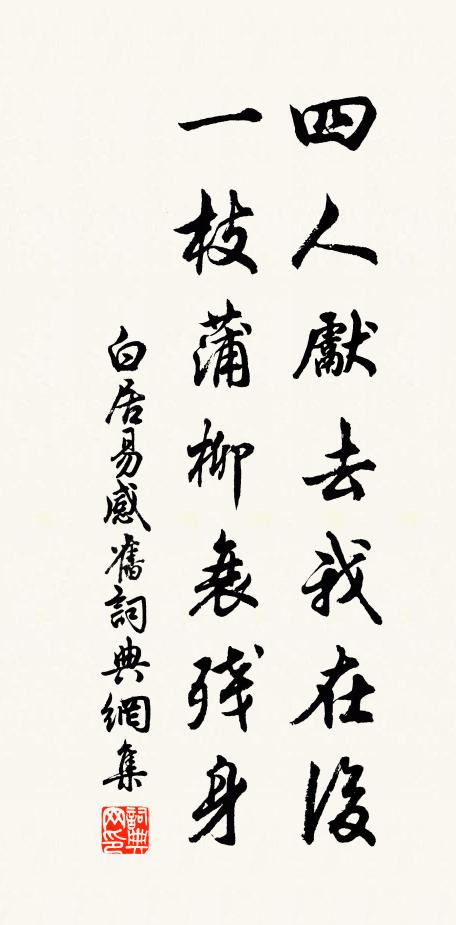 四人獻去我在後
一枝蒲柳衰残身
白居易感舊詞典網集
詞典网印